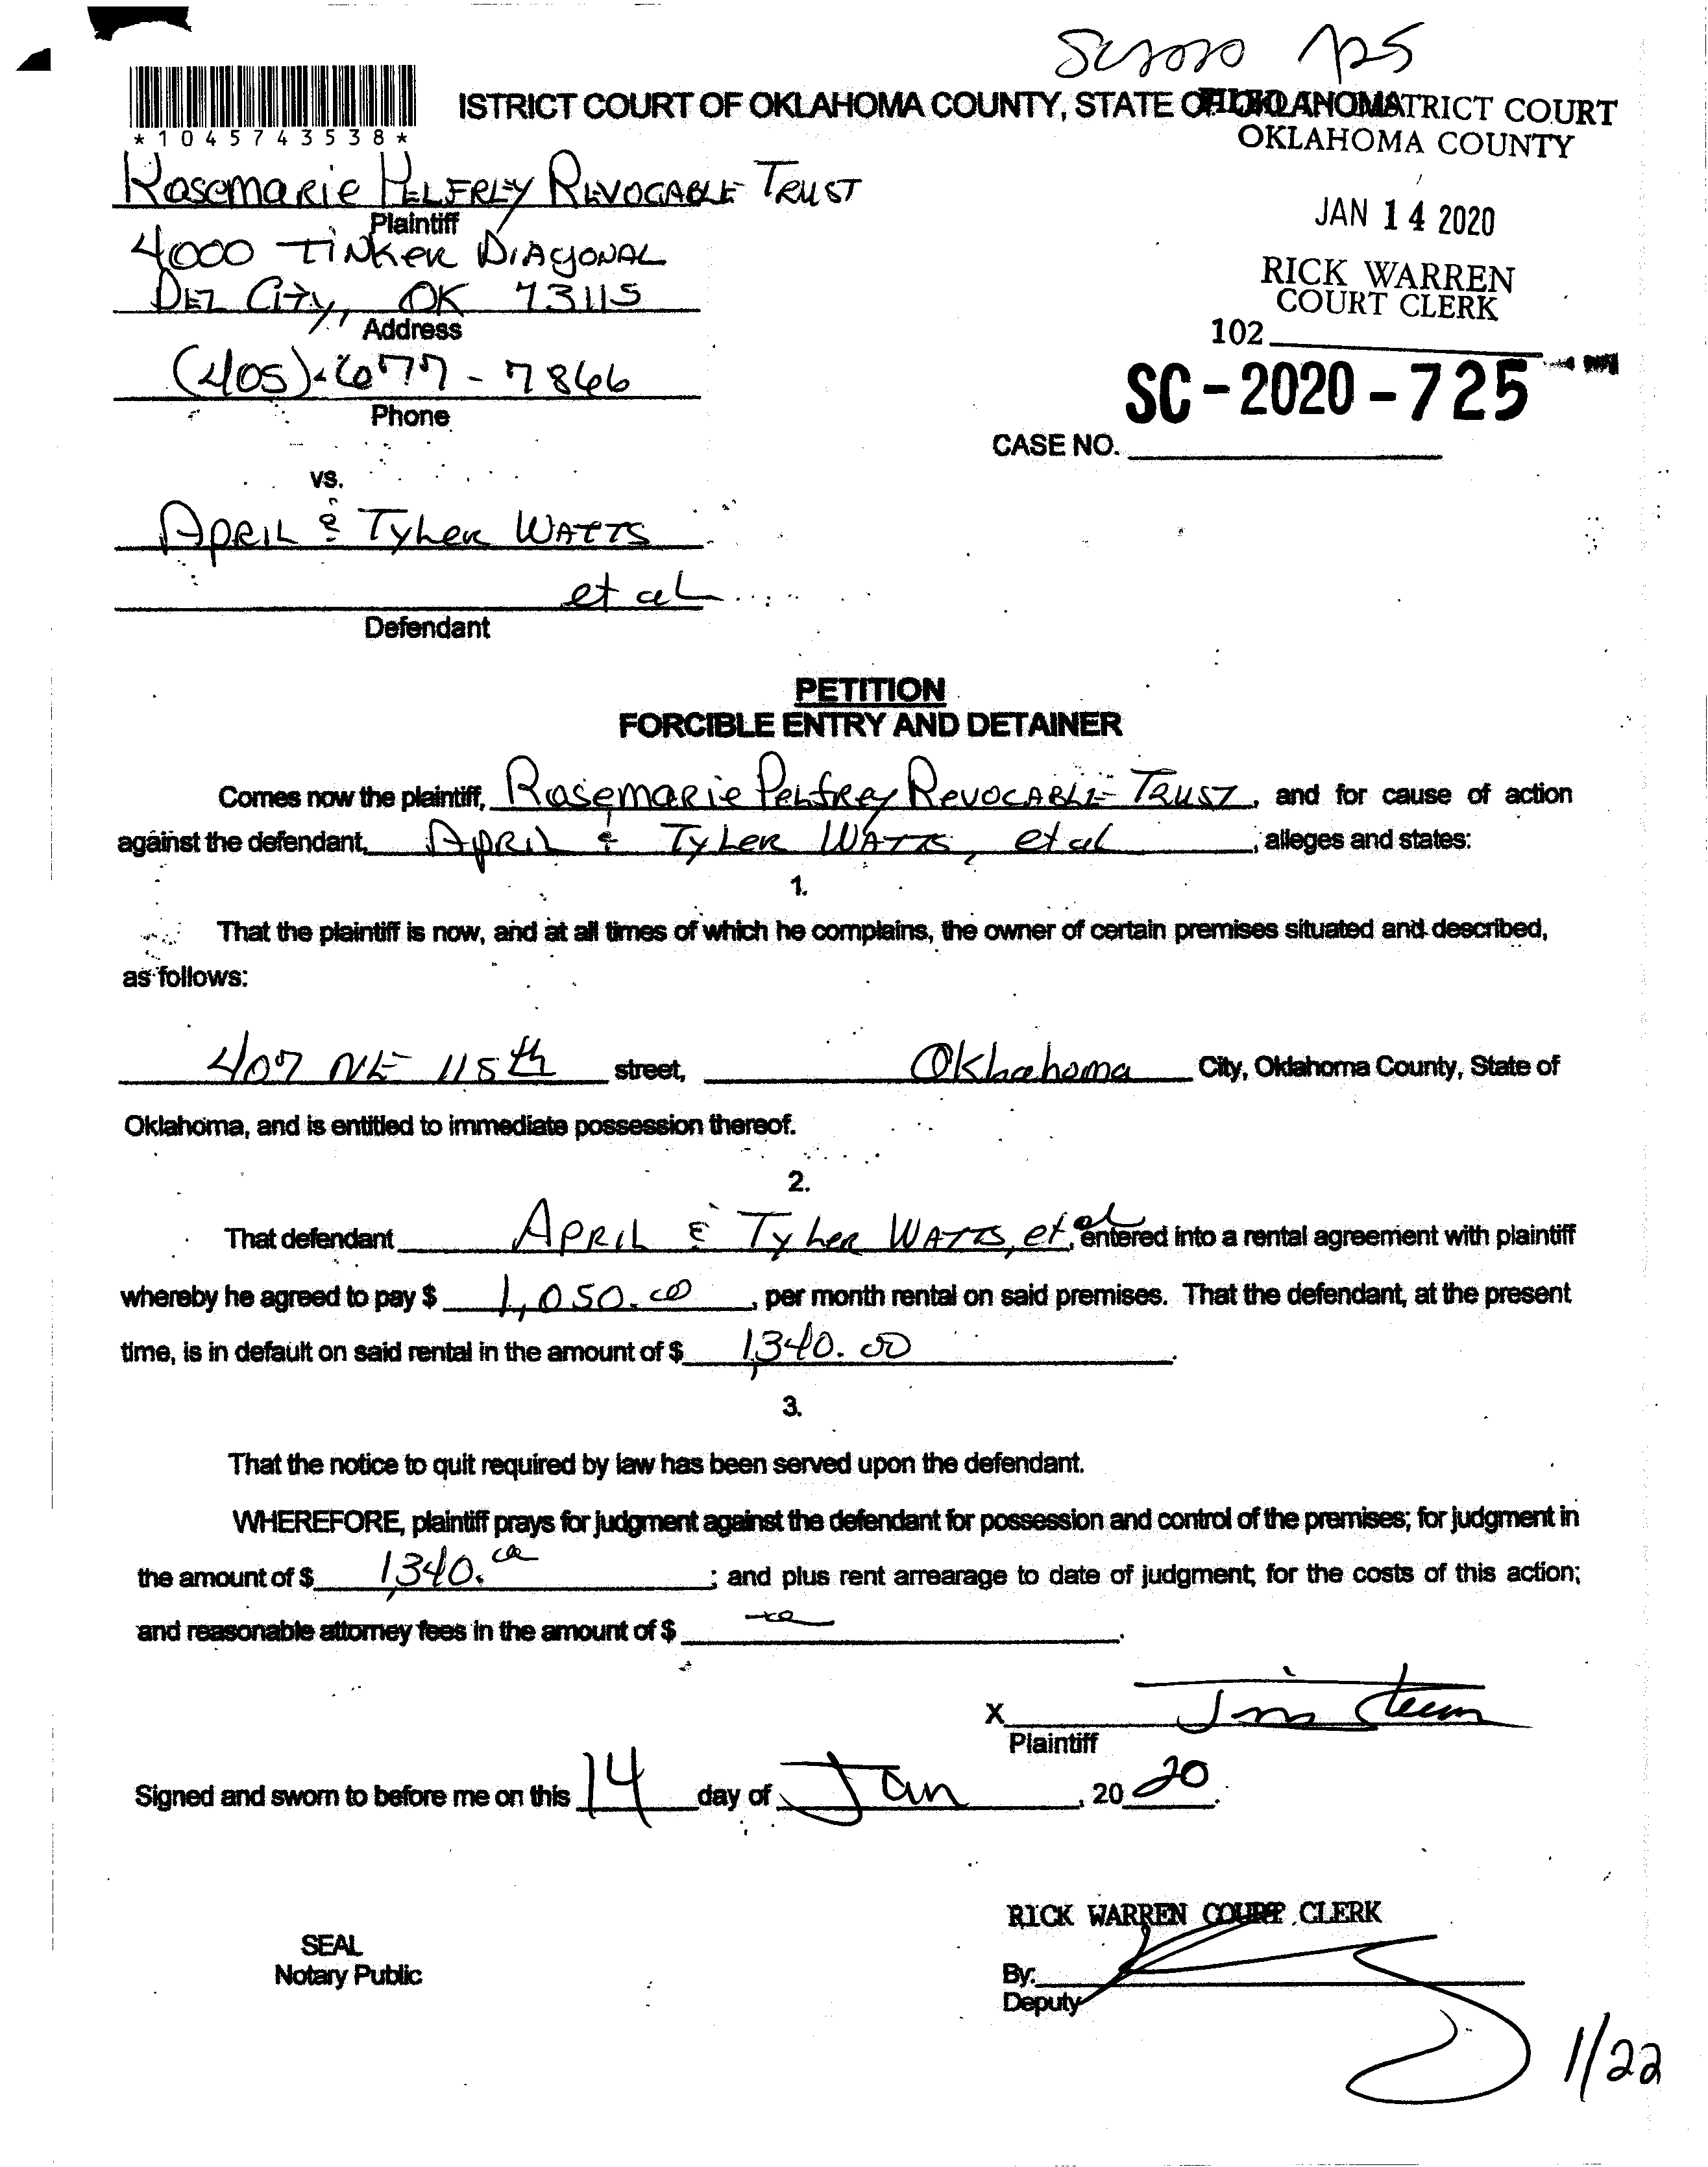 SC2020 725
ISTRICT COURT OF OKLAHOMA COUNTY, STATE OF OKLAHOMA
FILED IN DISTRICT COURT
OKLAHOMA COUNTY
*1045743538*
Rosemarie Pelfrey Revocable Trust
Plaintiff
JAN 14 2020
4000 Tinker Diagonal
Del City, OK 73115
Address
RICK WARREN
COURT CLERK
102
(405) 677-7866
Phone
SC-2020-725
CASE NO.
vs.
April & Tyler Watts
et al
Defendant
PETITION
FORCIBLE ENTRY AND DETAINER
Comes now the plaintiff, Rosemarie Pelfrey Revocable Trust, and for cause of action
against the defendant, April & Tyler Watts, et al, alleges and states:
1.
That the plaintiff is now, and at all times of which he complains, the owner of certain premises situated and described,
as follows:
407 NE 115th street, Oklahoma City, Oklahoma County, State of
Oklahoma, and is entitled to immediate possession thereof.
2.
That defendant April & Tyler Watts, et al, entered into a rental agreement with plaintiff
whereby he agreed to pay $ 1,050.00, per month rental on said premises. That the defendant, at the present
time, is in default on said rental in the amount of $ 1,340.00.
3.
That the notice to quit required by law has been served upon the defendant.
WHEREFORE, plaintiff prays for judgment against the defendant for possession and control of the premises; for judgment in
the amount of $ 1,340.00; and plus rent arrearage to date of judgment; for the costs of this action;
and reasonable attorney fees in the amount of $
X
Plaintiff
Signed and sworn to before me on this 14 day of Jan, 2020.
RICK WARREN COURT CLERK
SEAL
Notary Public
By:
Deputy
1/22